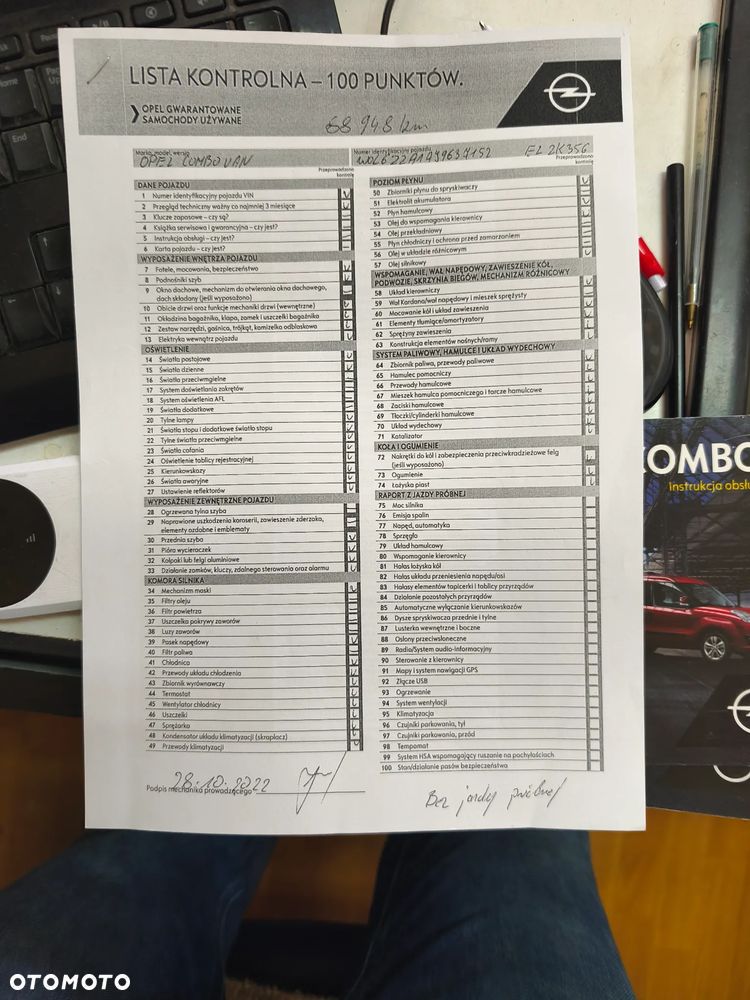 LISTA KONTROLNA – 100 PUNKTÓW.
OPEL GWARANTOWANE
SAMOCHODY UŻYWANE
68 948 km
Marka, model, wersja
OPEL COMBO VAN
Numer identyfikacyjny pojazdu
EL 2K356
Przeprowadzono kontrolę
DANE POJAZDU
1 Numer identyfikacyjny pojazdu VIN
2 Przegląd techniczny ważny co najmniej 3 miesiące
3 Klucze zapasowe – czy są?
4 Książka serwisowa i gwarancyjna – czy jest?
5 Instrukcja obsługi – czy jest?
6 Karta pojazdu – czy jest?
WYPOSAŻENIE WNĘTRZA POJAZDU
7 Fotele, mocowania, bezpieczeństwo
8 Podnośniki szyb
9 Okno dachowe, mechanizm do otwierania okna dachowego,
dach składany (jeśli wyposażono)
10 Obicie drzwi oraz funkcje mechaniki drzwi (wewnętrzne)
11 Okładzina bagażnika, klapa, zamek i uszczelki bagażnika
12 Zestaw narzędzi, gaśnica, trójkąt, kamizelka odblaskowa
13 Elektryka wewnątrz pojazdu
OŚWIETLENIE
14 Światła postojowe
15 Światła dzienne
16 Światła przeciwmgielne
17 System doświetlania zakrętów
18 System oświetlenia AFL
19 Światła dodatkowe
20 Tylne lampy
21 Światła stopu i dodatkowe światło stopu
22 Tylne światła przeciwmgielne
23 Światła cofania
24 Oświetlenie tablicy rejestracyjnej
25 Kierunkowskazy
26 Światła awaryjne
27 Ustawienie reflektorów
WYPOSAŻENIE ZEWNĘTRZNE POJAZDU
28 Ogrzewana tylna szyba
29 Naprawione uszkodzenia karoserii, zawieszenie zderzaka,
elementy ozdobne i emblematy
30 Przednia szyba
31 Pióra wycieraczek
32 Kołpaki lub felgi aluminiowe
33 Działanie zamków, kluczy, zdalnego sterowania oraz alarmu
KOMORA SILNIKA
34 Mechanizm maski
35 Filtry oleju
36 Filtr powietrza
37 Uszczelka pokrywy zaworów
38 Luzy zaworów
39 Pasek napędowy
40 Filtr paliwa
41 Chłodnica
42 Przewody układu chłodzenia
43 Zbiornik wyrównawczy
44 Termostat
45 Wentylator chłodnicy
46 Uszczelki
47 Sprężarka
48 Kondensator układu klimatyzacji (skraplacz)
49 Przewody klimatyzacji
28.10.2022
Podpis mechanika prowadzącego
Przeprowadzono kontrolę
POZIOM PŁYNU
50 Zbiorniki płynu do spryskiwaczy
51 Elektrolit akumulatora
52 Płyn hamulcowy
53 Olej do wspomagania kierownicy
54 Olej przekładniowy
55 Płyn chłodniczy i ochrona przed zamarzaniem
56 Olej w układzie różnicowym
57 Olej silnikowy
WSPOMAGANIE, WAŁ NAPĘDOWY, ZAWIESZENIE KÓŁ,
PODWOZIE, SKRZYNIA BIEGÓW, MECHANIZM RÓŻNICOWY
58 Układ kierowniczy
59 Wał Kardana/wał napędowy i mieszek sprężysty
60 Mocowanie kół i układ zawieszenia
61 Elementy tłumiące/amortyzatory
62 Sprężyny zawieszenia
63 Konstrukcja elementów nośnych/ramy
SYSTEM PALIWOWY, HAMULCE I UKŁAD WYDECHOWY
64 Zbiornik paliwa, przewody paliwowe
65 Hamulec pomocniczy
66 Przewody hamulcowe
67 Mieszek hamulca pomocniczego i tarcze hamulcowe
68 Zaciski hamulcowe
69 Tłoczki/cylinderki hamulcowe
70 Układ wydechowy
71 Katalizator
KOŁA I OGUMIENIE
72 Nakrętki do kół i zabezpieczenia przeciwkradzieżowe felg
(jeśli wyposażono)
73 Ogumienie
74 Łożyska piast
RAPORT Z JAZDY PRÓBNEJ
75 Moc silnika
76 Emisja spalin
77 Napęd, automatyka
78 Sprzęgło
79 Układ hamulcowy
80 Wspomaganie kierownicy
81 Hałas łożyska kół
82 Hałas układu przeniesienia napędu/osi
83 Hałasy elementów tapicerki i tablicy przyrządów
84 Działanie pozostałych przyrządów
85 Automatyczne wyłączanie kierunkowskazów
86 Dysze spryskiwacza przednie i tylne
87 Lusterka wewnętrzne i boczne
88 Osłony przeciwsłoneczne
89 Radio/System audio-informacyjny
90 Sterowanie z kierownicy
91 Mapy i system nawigacji GPS
92 Złącze USB
93 Ogrzewanie
94 System wentylacji
95 Klimatyzacja
96 Czujniki parkowania, tył
97 Czujniki parkowania, przód
98 Tempomat
99 System HSA wspomagający ruszanie na pochyłościach
100 Stan/działanie pasów bezpieczeństwa
Bez jazdy próbnej
OMBO
Instrukcja obsłu
Home
End
OTOMOTO